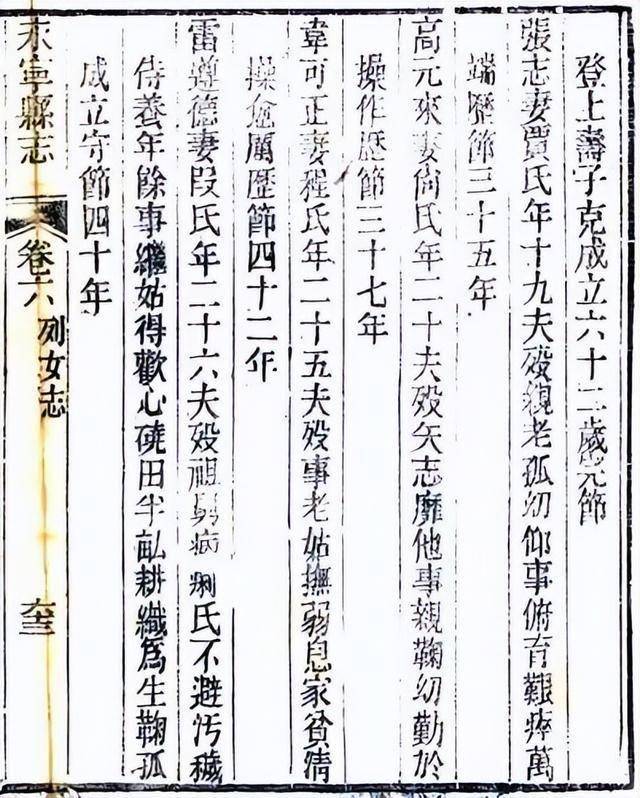 登上壽子克成立六十二歲完節
張志妻賈氏年十九夫殁親老孤幼仰事俯育艱瘁萬
端歷節三十五年
高元來妻尙氏年二十夫殁矢志靡他事親鞠幼勤於
操作歷節三十七年
韋可正妻程氏年二十五夫殁事老姑撫弱息家貧清
操愈厲歷節四十二年
雷遵德妻段氏年二十六夫殁祖舅病痢氏不避汚穢
侍養年餘事繼姑得歡心磽田半畝耕織爲生鞠孤
成立守節四十年
永寧縣志
卷六
列女志
六三